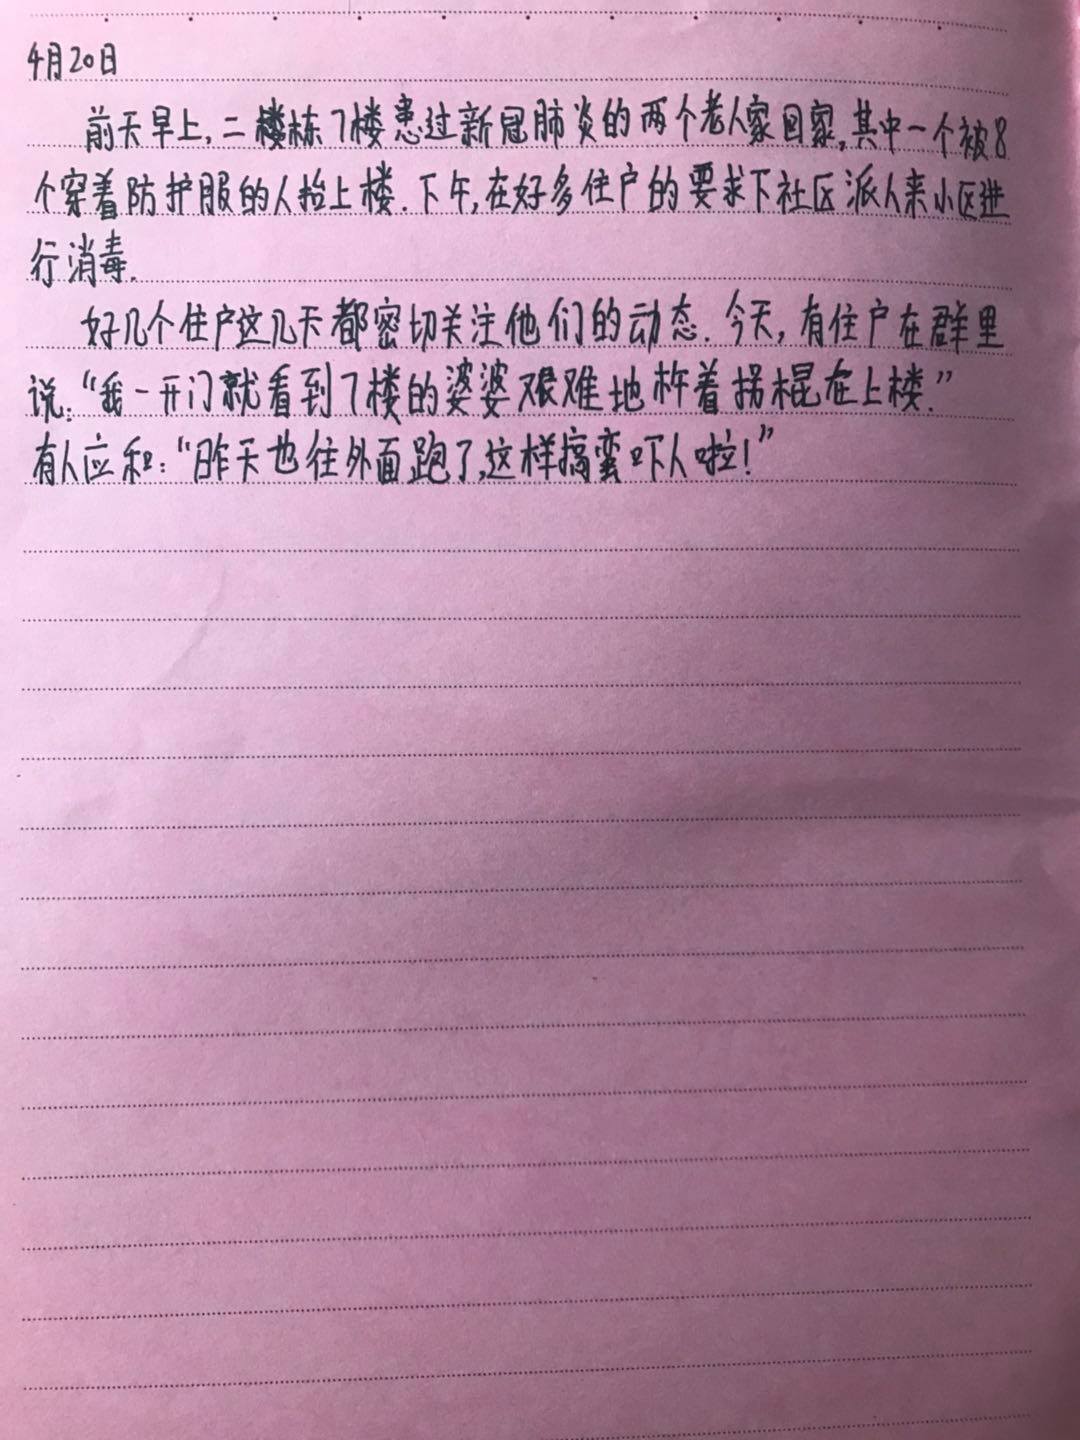 4月20日
前天早上,二楼栋7楼患过新冠肺炎的两个老人家回家,其中一个被8
个穿着防护服的人抬上楼.下午,在好多住户的要求下社区派人来小区进
行消毒.
好几个住户这几天都密切关注他们的动态.今天,有住户在群里
说:“我一开门就看到7楼的婆婆艰难地杵着拐棍在上楼.”
有人应和:“昨天也往外面跑了,这样搞蛮吓人啦!”